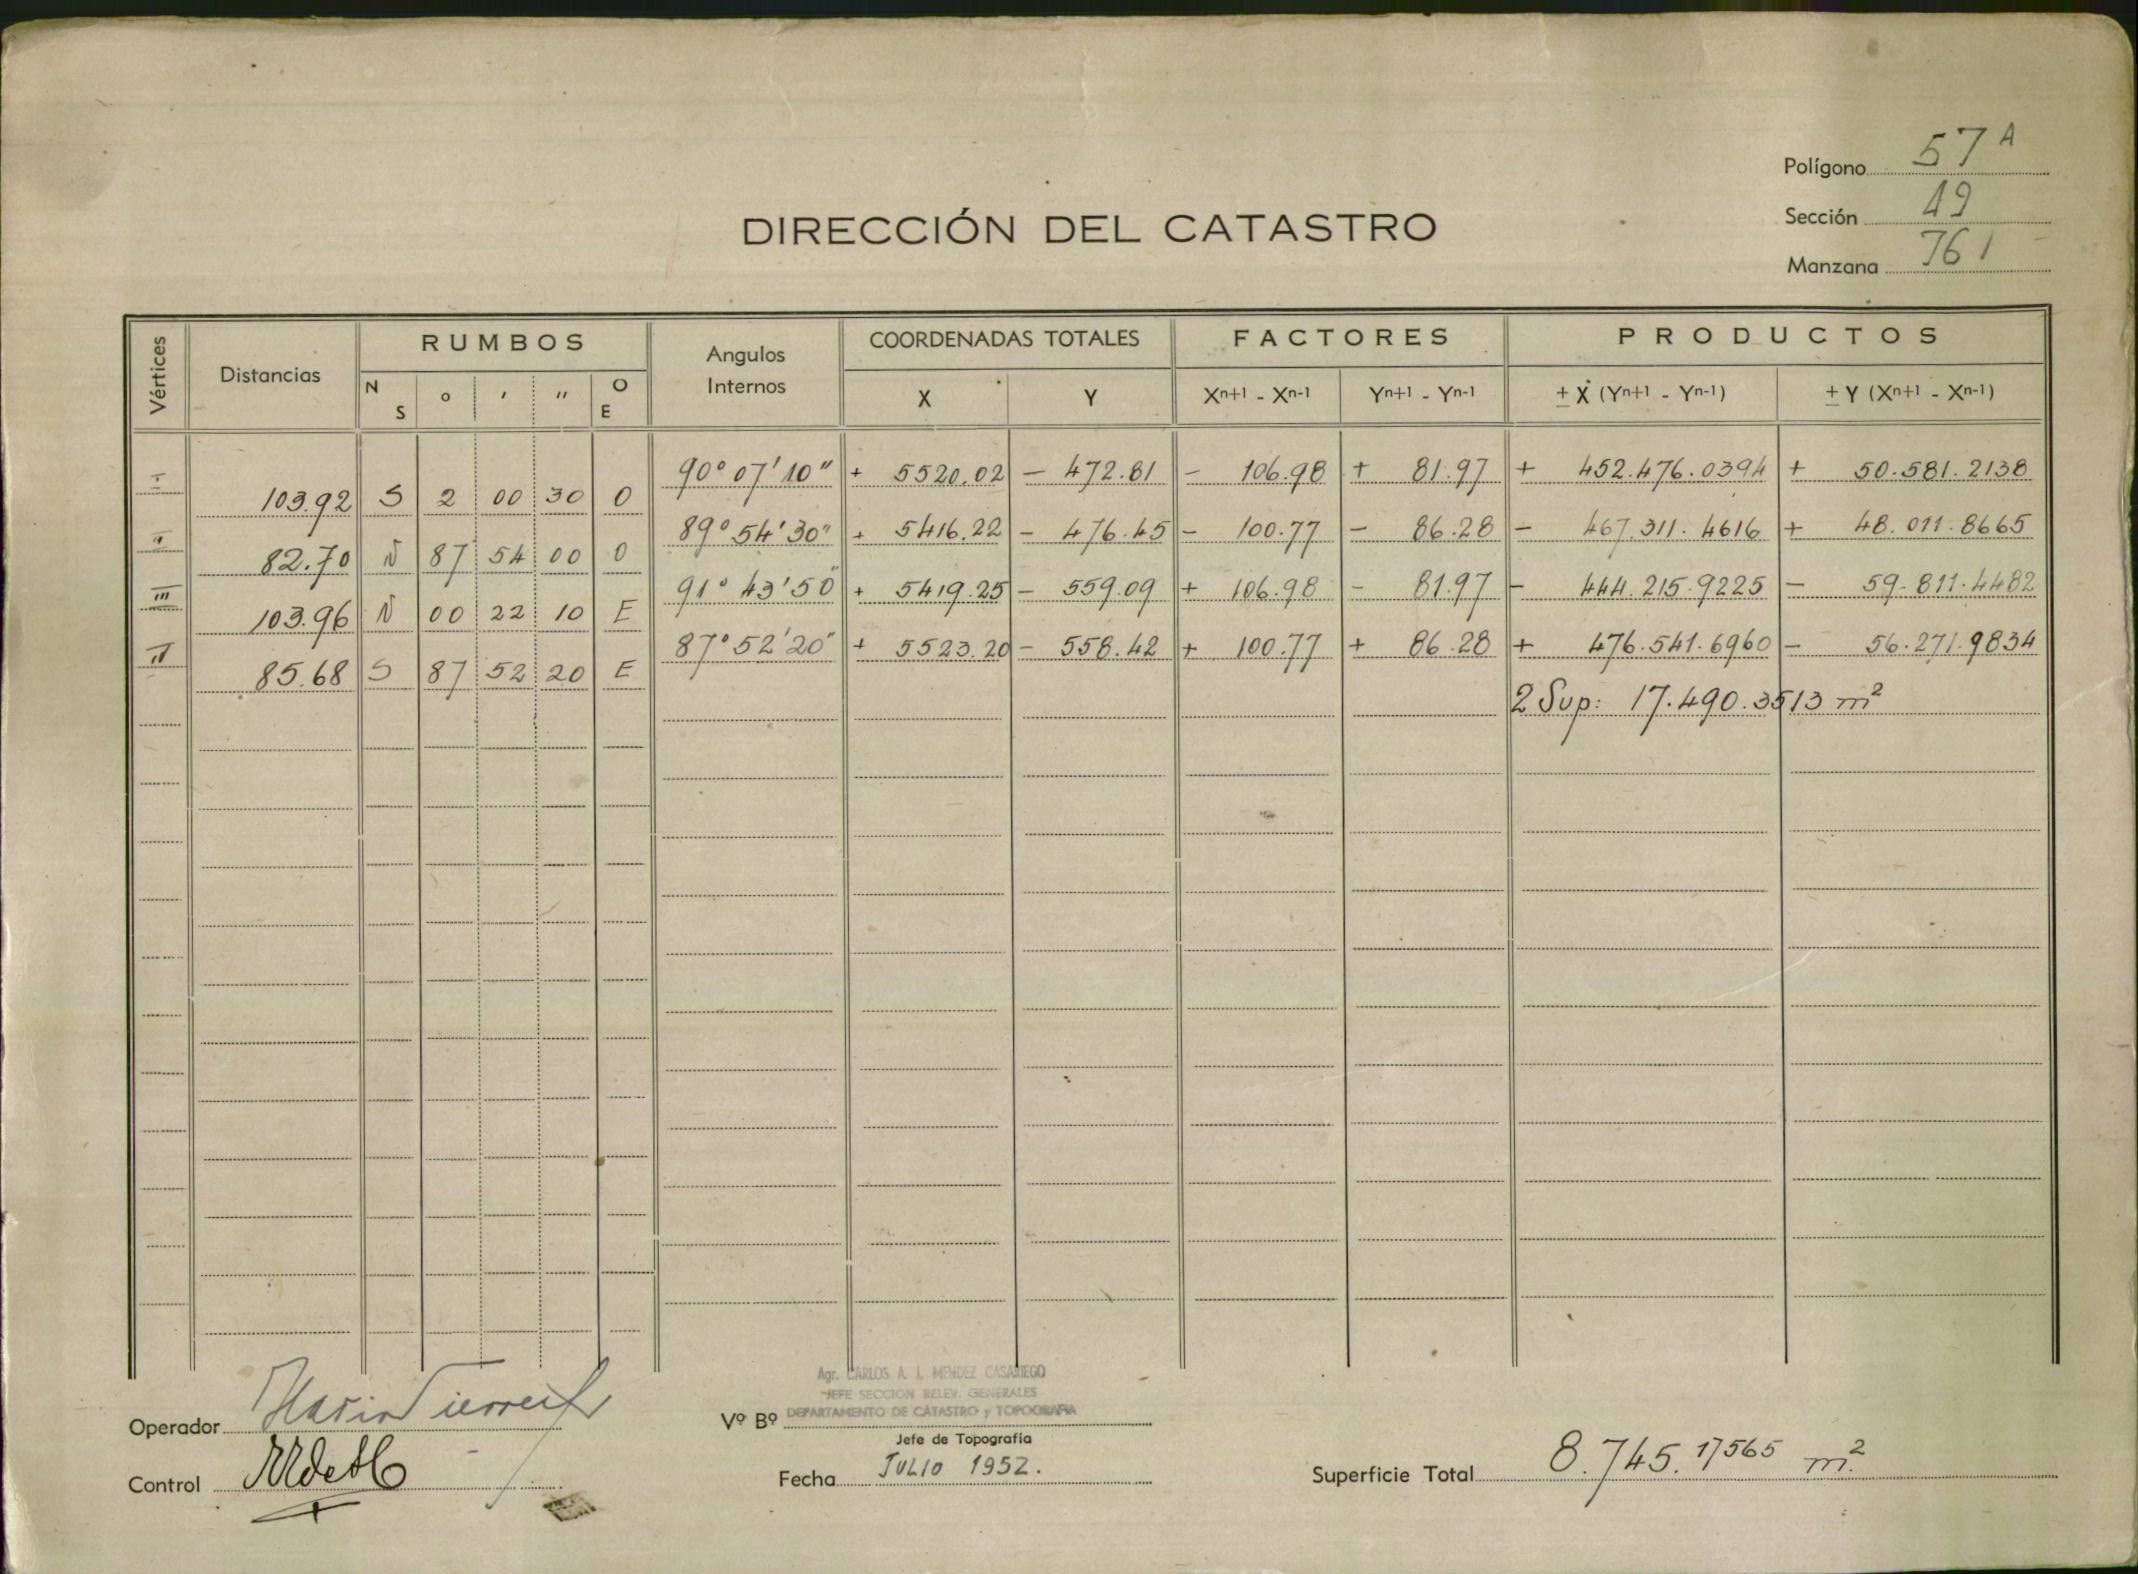 Polígono 57 A
Sección 19
Manzana 761
DIRECCIÓN DEL CATASTRO
Vértices Distancias RUMBOS Angulos Internos COORDENADAS TOTALES FACTORES PRODUCTOS
N S ° ' " O E X Y Xn+1 - Xn-1 Yn+1 - Yn-1 ± X (Yn+1 - Yn-1) ± Y (Xn+1 - Xn-1)
I 103.92 S 2 00 30 O 90° 07' 10" + 5520.02 - 472.81 - 106.98 + 81.97 + 452.476.0394 + 50.581.2138
II 82.70 N 87 54 00 O 89° 54' 30" + 5416.22 - 476.45 - 100.77 - 86.28 - 467.311.4616 + 48.011.8665
III 103.96 N 00 22 10 E 91° 43' 50" + 5419.25 - 559.09 + 106.98 - 81.97 - 444.215.9225 - 59.811.4482
IV 85.68 S 87 52 20 E 87° 52' 20" + 5523.20 - 558.42 + 100.77 + 86.28 + 476.541.6960 - 56.271.9834
2 Sup: 17.490.3513 m²
Agr. CARLOS A. I. MENDEZ CASARIEGO
JEFE SECCION RELEV. GENERALES
DEPARTAMENTO DE CATASTRO y TOPOGRAFIA
Operador
Vº Bº
Jefe de Topografía
Control
Fecha JULIO 1952.
Superficie Total 8.745.17565 m²